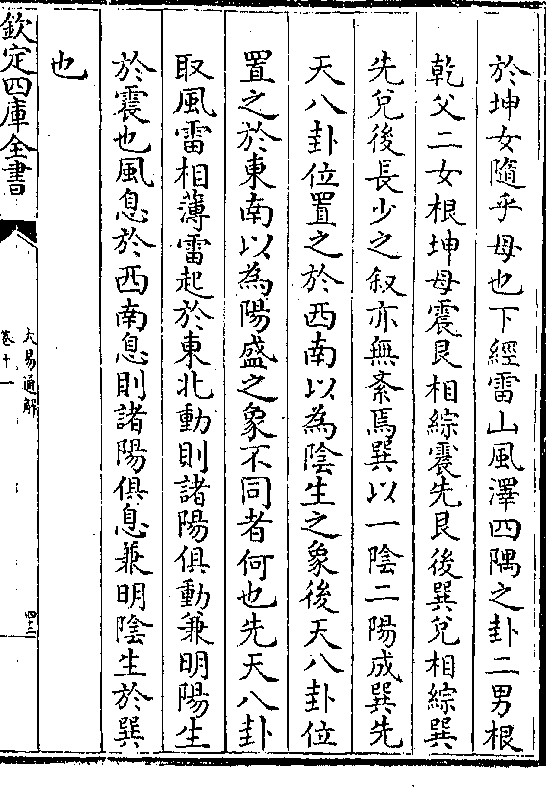 於坤女隨乎母也下經雷山風澤四隅之卦二男根
乾父二女根坤母震艮相綜震先艮後巽兌相綜巽
先兌後長少之叙亦無紊焉巽以一陰二陽成巽先
天八卦位置之於西南以為陰生之象後天八卦位
置之於東南以為陽盛之象不同者何也先天八卦
取風雷相薄雷起於東北動則諸陽俱動兼明陽生
於震也風息於西南息則諸陽俱息兼明陰生於巽
也
欽定四庫全書
大易通解
卷十一
四三